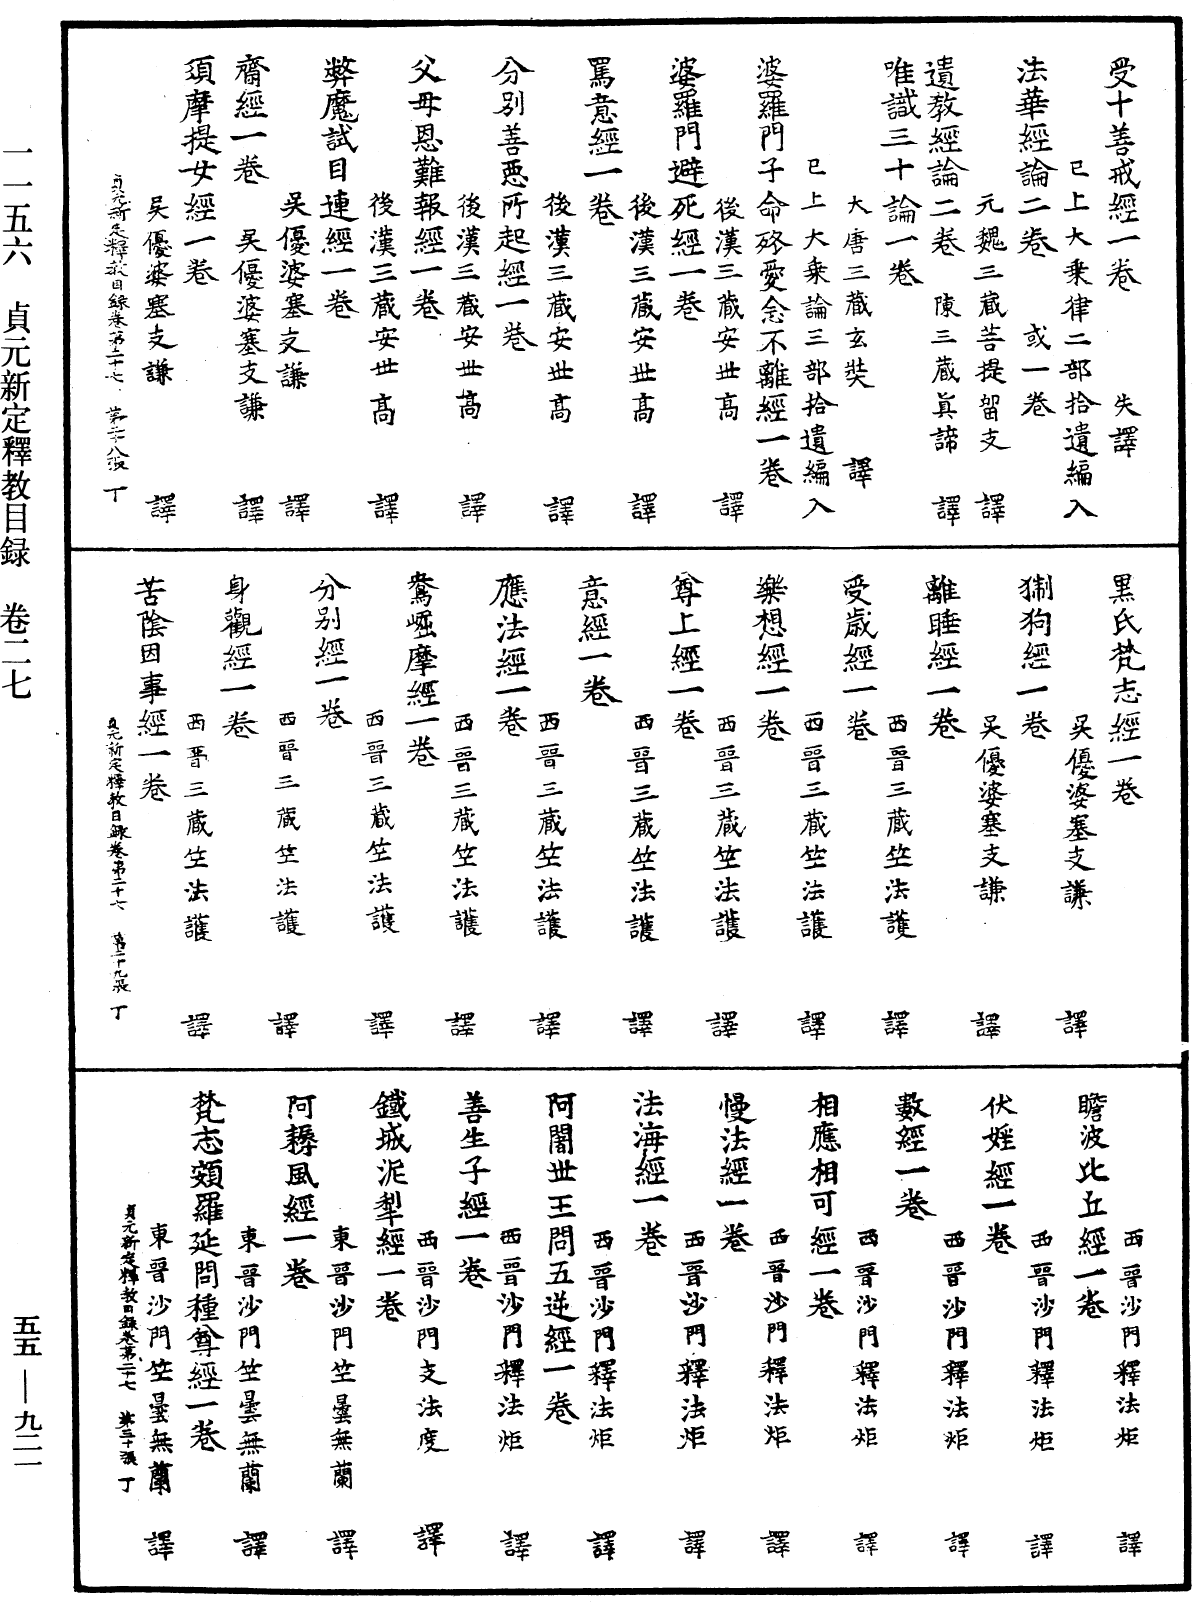 受十善戒經一卷　失譯
已上大乘律二部拾遺編入
法華經論二卷　或一卷
元魏三藏菩提留支　譯
遺教經論二卷　陳三藏真諦　譯
唯識三十論一卷
大唐三藏玄奘　譯
已上大乘論三部拾遺編入
婆羅門子命終愛念不離經一卷
後漢三藏安世高　譯
婆羅門避死經一卷
後漢三藏安世高　譯
罵意經一卷
後漢三藏安世高　譯
分別善惡所起經一卷
後漢三藏安世高　譯
父母恩難報經一卷
後漢三藏安世高　譯
弊魔試目連經一卷
吳優婆塞支謙　譯
齋經一卷　吳優婆塞支謙　譯
須摩提女經一卷
吳優婆塞支謙　譯
貞元新定釋教目錄卷第二十七　第二十八張　丁
黑氏梵志經一卷
吳優婆塞支謙　譯
猘狗經一卷
吳優婆塞支謙　譯
離睡經一卷
西晉三藏竺法護　譯
受歲經一卷
西晉三藏竺法護　譯
樂想經一卷
西晉三藏竺法護　譯
尊上經一卷
西晉三藏竺法護　譯
意經一卷
西晉三藏竺法護　譯
應法經一卷
西晉三藏竺法護　譯
鴦崛摩經一卷
西晉三藏竺法護　譯
分別經一卷
西晉三藏竺法護　譯
身觀經一卷
西晉三藏竺法護　譯
苦陰因事經一卷
貞元新定釋教目錄卷第二十七　第二十九張　丁
西晉沙門釋法炬　譯
瞻波比丘經一卷
西晉沙門釋法炬　譯
伏婬經一卷
西晉沙門釋法炬　譯
數經一卷
西晉沙門釋法炬　譯
相應相可經一卷
西晉沙門釋法炬　譯
慢法經一卷
西晉沙門釋法炬　譯
法海經一卷
西晉沙門釋法炬　譯
阿闍世王問五逆經一卷
西晉沙門釋法炬　譯
善生子經一卷
西晉沙門支法度　譯
鐵城泥犁經一卷
東晉沙門竺曇無蘭　譯
阿耨風經一卷
東晉沙門竺曇無蘭　譯
梵志頞羅延問種尊經一卷
東晉沙門竺曇無蘭　譯
貞元新定釋教目錄卷第二十七　第三十張　丁
一一五六　貞元新定釋教目録　卷二七
五五—九二一